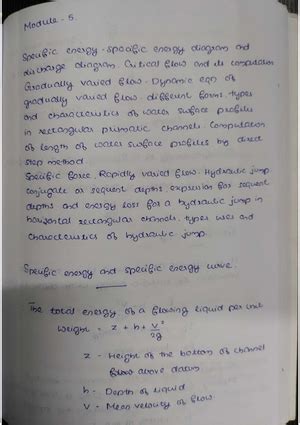 Module - 5.
Specific energy - Specific energy diagram and
discharge diagram. Critical flow and its computation
Gradually varied flow. Dynamic eqn of
gradually varied flow. different forms, types
and characteristics of water surface profiles
in rectangular prismatic channels. Computation
of length of water surface profiles by direct
step method
Specific force. Rapidly varied flow. Hydraulic jump
conjugate or sequent depths, expression for sequent
depths and energy loss for a hydraulic jump in
horizontal rectangular channels. types uses and
characteristics of hydraulic jump.
Specific energy and specific energy curve.
The total energy of a flowing liquid per unit
Weight = z + h + V²/2g
z - Height of the bottom of channel
flow above datum
h - Depth of liquid
V - Mean velocity of flow.